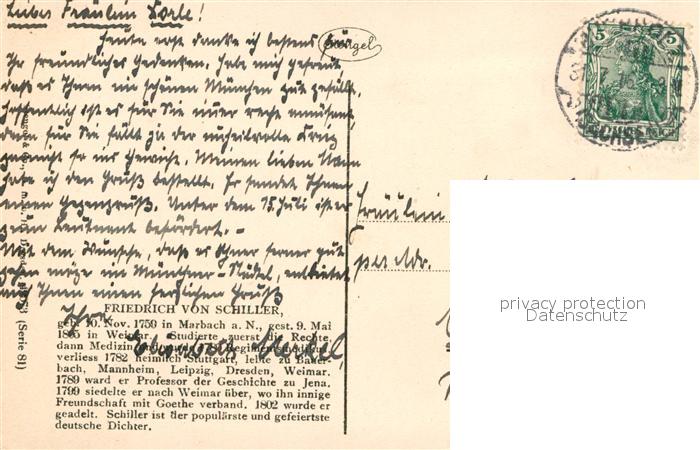 Liebes Fräulein Dorle!
Heute erst danke ich bestens für
Ihr freundliches Gedenken. Habe mich gefreut,
daß es Ihnen im schönen München gut gefällt,
hoffentlich ist es für Sie immer recht amüsant,
denn für Sie fällt ja der unheilvolle Krieg
ins Gewicht. Meinem lieben Mann
habe ich den Gruß bestellt. Er sendet Ihnen
einen Gegengruß. Unter dem 15. Juli ist er
zum Leutnant befördert.-
Mit dem Wunsche, daß es Ihnen ferner gut
gehen möge im Münchner-Städel, entbietet
Ihnen einen herzlichen Gruß
Ihre
Stengel
5
Fräulein
per Adr.
privacy protection
Datenschutz
FRIEDRICH VON SCHILLER,
geb. 10. Nov. 1759 in Marbach a. N., gest. 9. Mai
1805 in Weimar. Studierte zuerst die Rechte,
dann Medizin
verliess 1782 heimlich Stuttgart, lebte zu Bauer-
bach, Mannheim, Leipzig, Dresden, Weimar.
1789 ward er Professor der Geschichte zu Jena.
1799 siedelte er nach Weimar über, wo ihn innige
Freundschaft mit Goethe verband. 1802 wurde er
geadelt. Schiller ist der populärste und gefeiertste
deutsche Dichter.
(Serie 81)